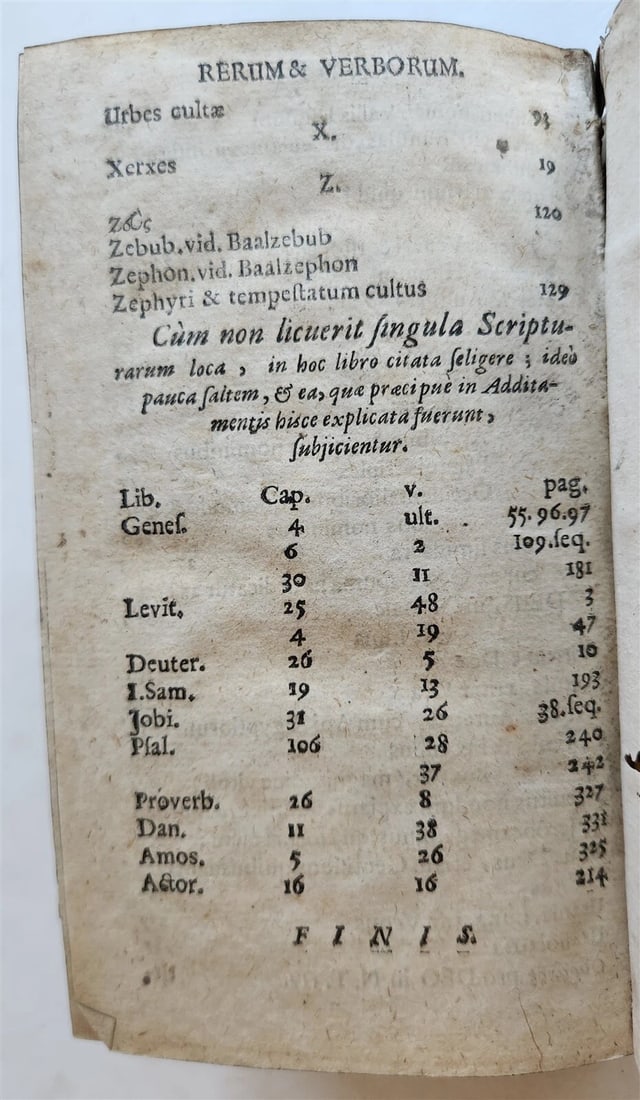 RERUM & VERBORUM.
Urbes cultæ 93
X.
Xerxes 19
Z.
Ζεὺς 120
Zebub. vid. Baalzebub
Zephon. vid. Baalzephon
Zephyri & tempeſtatum cultus 129
Cùm non licuerit ſingula Scriptu-
rarum loca, in hoc libro citata ſeligere; ideò
pauca ſaltem, & ea, quæ præcipuè in Addita-
mentis hisce explicata fuerunt,
ſubjicientur.
Lib. Cap. v. pag.
Geneſ. 4 ult. 55. 96. 97
6 2 109. ſeq.
30 11 181
Levit. 25 48 3
4 19 47
Deuter. 26 5 10
I. Sam. 19 13 193
Jobi. 31 26 38. ſeq.
Pſal. 106 28 240
37 242
Proverb. 26 8 327
Dan. 11 38 331
Amos. 5 26 325
Actor. 16 16 214
FINIS.